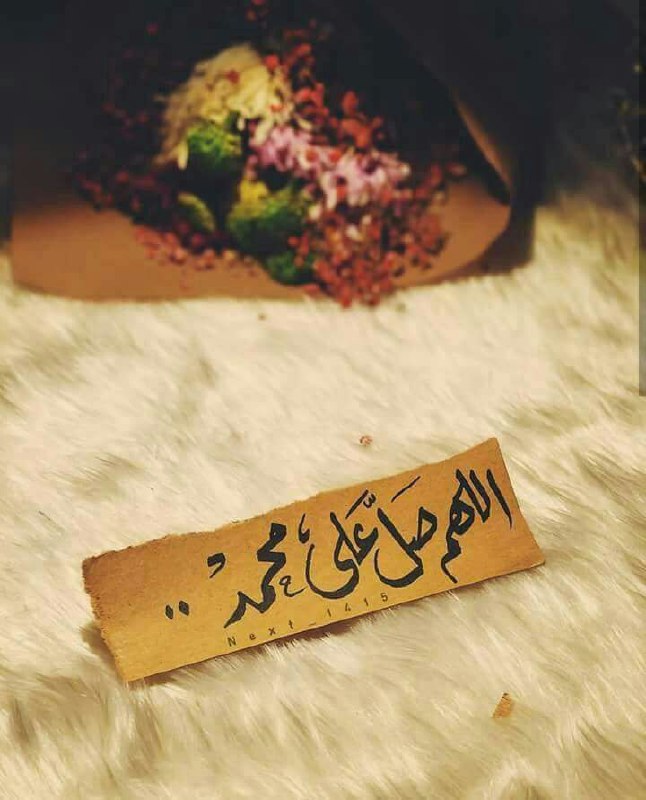 اللهم صل على محمد ..
Next_1415